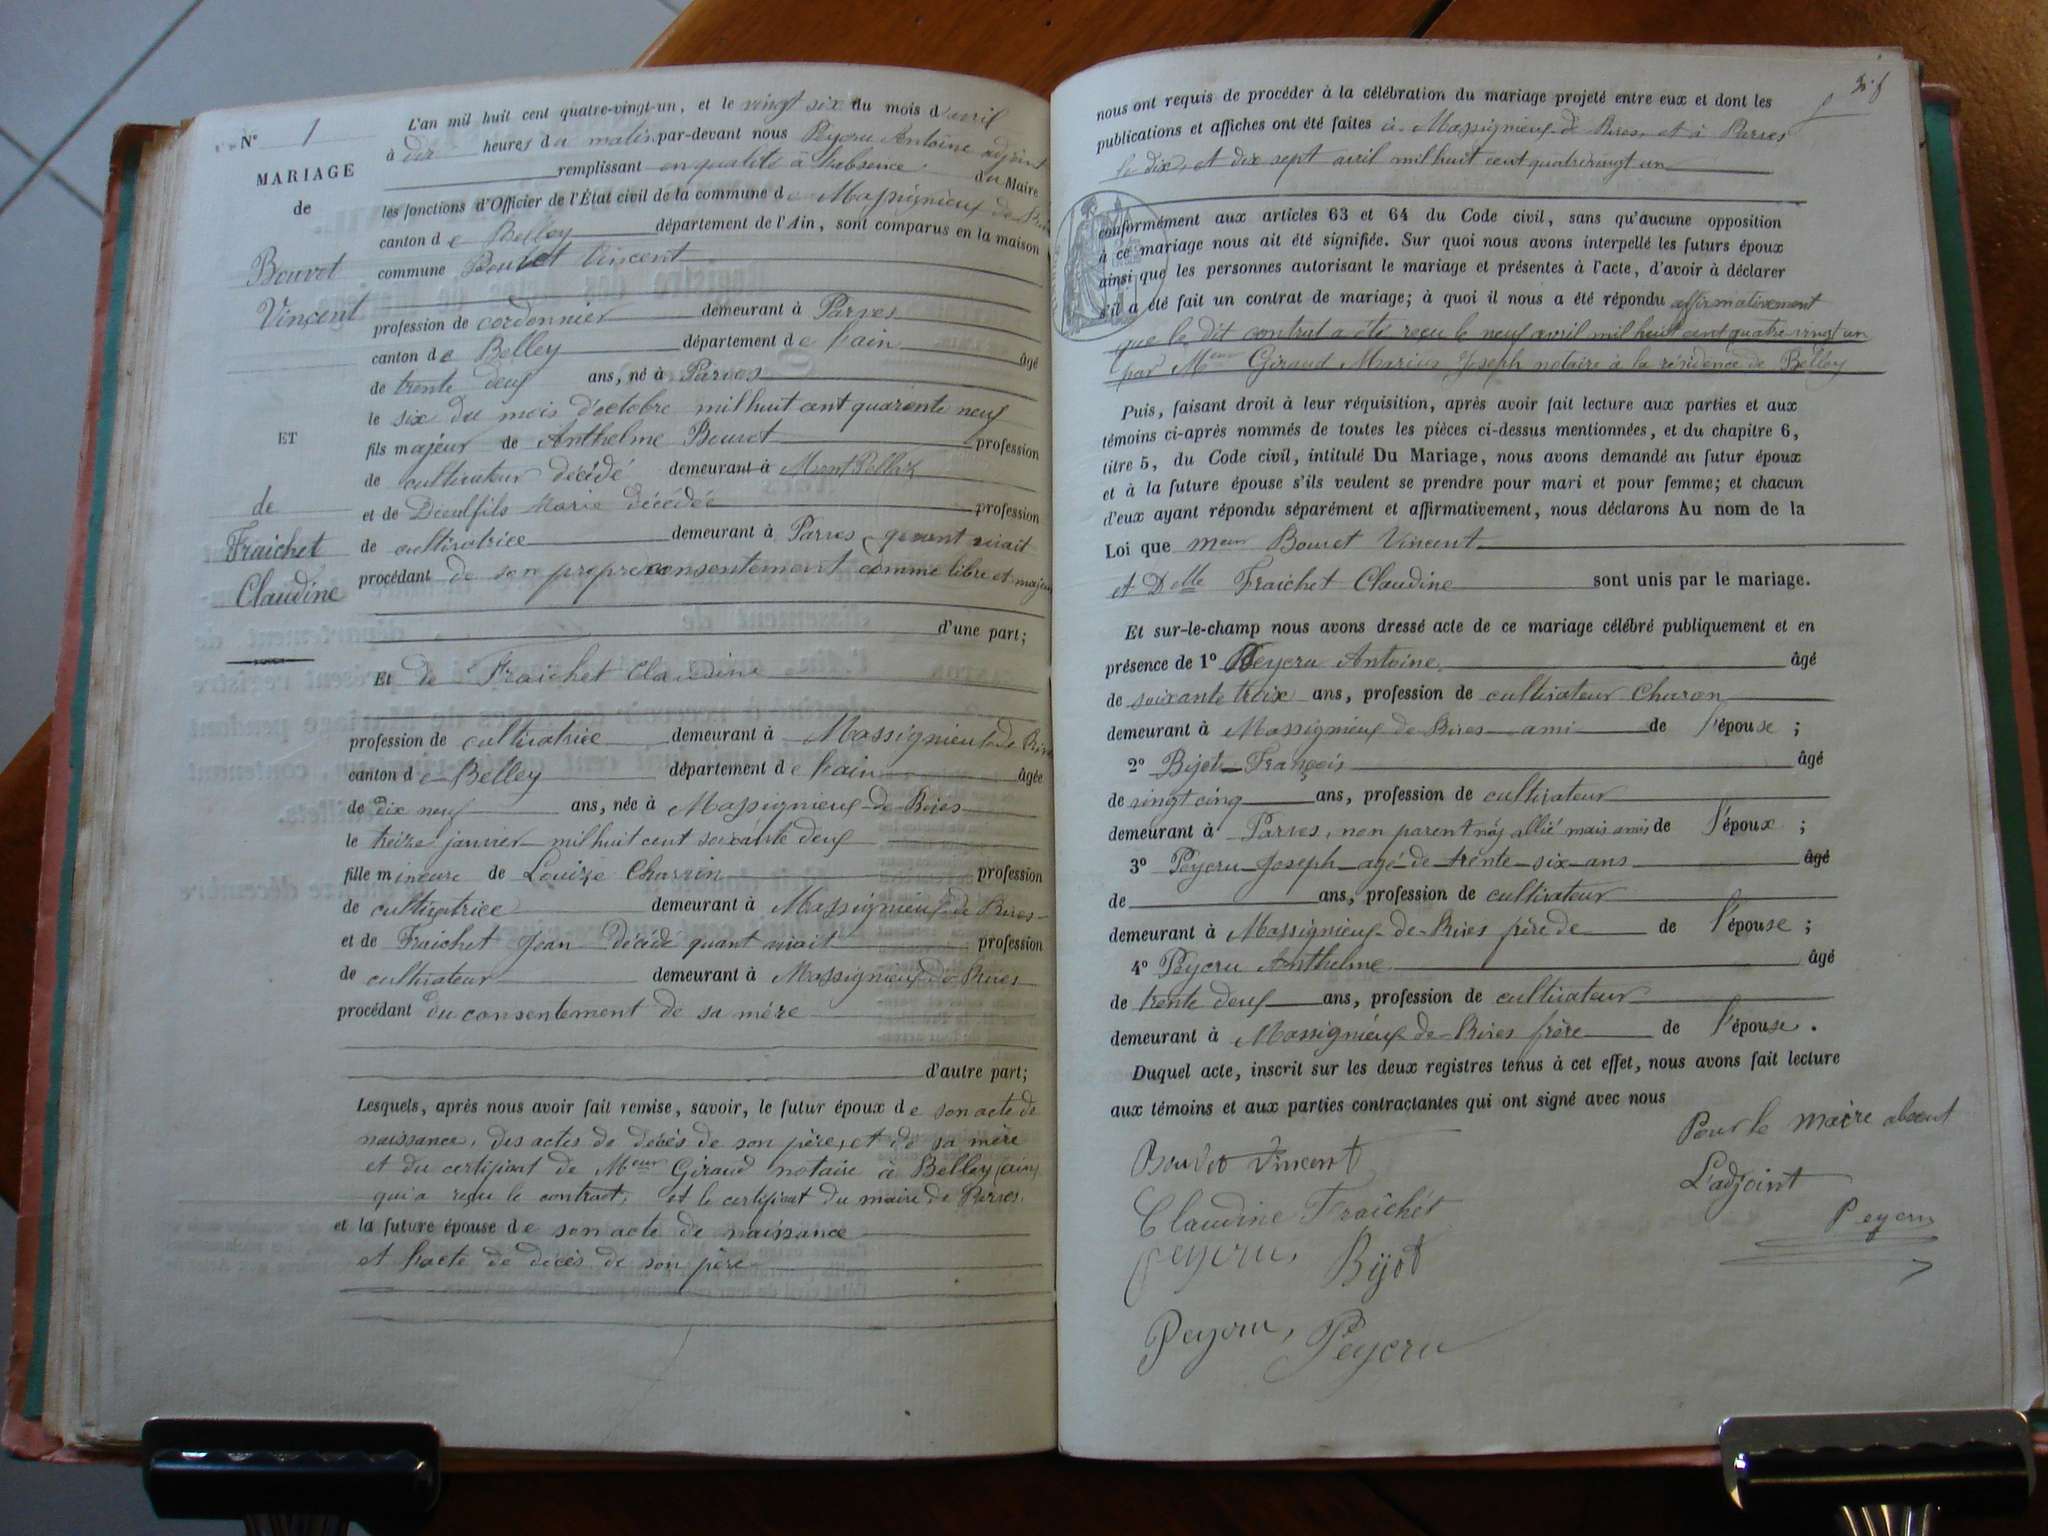 N° 1
MARIAGE
de
Bouvet
Vincent
ET
de
Fraichet
Claudine
L'an mil huit cent quatre-vingt-un, et le vingt six du mois d'avril
à dix heures du matin par-devant nous Peycru Antoine adjoint
remplissant en qualité à l'absence du Maire
les fonctions d'Officier de l'État civil de la commune de Massignieux de Rives
canton de Belley département de l'Ain, sont comparus en la maison
commune Bouvet Vincent
profession de cordonnier demeurant à Parves
canton de Belley département de l'ain âgé
de trente deux ans, né à Parves
le six du mois d'octobre mil huit cent quarante neuf
fils majeur de Anthelme Bouvet profession
de cultivateur décédé demeurant à
et de Marie décédée profession
de cultivatrice demeurant à Parves quant vivait
procédant de son propre consentement comme libre et majeur
d'une part;
Et de Fraichet Claudine
profession de cultivatrice demeurant à Massignieux de Rives
canton de Belley département de l'ain âgée
de dix neuf ans, née à Massignieux de Rives
le treize janvier mil huit cent soixante deux
fille mineure de Louise Charvin profession
de cultivatrice demeurant à Massignieux de Rives
et de Fraichet Jean décédé quant vivait profession
de cultivateur demeurant à Massignieux de Rives
procédant du consentement de sa mère
d'autre part;
Lesquels, après nous avoir fait remise, savoir, le futur époux de son acte de
naissance, des actes de décès de son père, et de sa mère
et du certificat de Meur Giraud notaire à Belley (ain)
qui a reçu le contract, et le certificat du maire de Parves.
et la future épouse de son acte de naissance
et l'acte de décès de son père
nous ont requis de procéder à la célébration du mariage projeté entre eux et dont les
publications et affiches ont été faites à Massignieux de Rives, et à Parves
le dix, et dix sept avril mil huit cent quatrevingt un
conformément aux articles 63 et 64 du Code civil, sans qu'aucune opposition
à ce mariage nous ait été signifiée. Sur quoi nous avons interpellé les futurs époux
ainsi que les personnes autorisant le mariage et présentes à l'acte, d'avoir à déclarer
s'il a été fait un contrat de mariage; à quoi il nous a été répondu affirmativement
que le dit contrat a été reçu le neuf avril mil huit cent quatre vingt un
par Meur Giraud Marius Joseph notaire à la résidence de Belley
Puis, faisant droit à leur réquisition, après avoir fait lecture aux parties et aux
témoins ci-après nommés de toutes les pièces ci-dessus mentionnées, et du chapitre 6,
titre 5, du Code civil, intitulé Du Mariage, nous avons demandé au futur époux
et à la future épouse s'ils veulent se prendre pour mari et pour femme; et chacun
d'eux ayant répondu séparément et affirmativement, nous déclarons Au nom de la
Loi que meur Bouvet Vincent
et Delle Fraichet Claudine sont unis par le mariage.
Et sur-le-champ nous avons dressé acte de ce mariage célébré publiquement et en
présence de 1° Peycru Antoine, âgé
de soixante troix ans, profession de cultivateur Charon
demeurant à Massignieux de Rives ami de l'épouse ;
2° Bijot François âgé
de vingt cinq ans, profession de cultivateur
demeurant à Parves, non parent n'y allié mais amis de l'époux ;
3° Peycru Joseph agé de trente six ans âgé
de ans, profession de cultivateur
demeurant à Massignieux de Rives frère de de l'épouse ;
4° Peycru Anthelme âgé
de trente deux ans, profession de cultivateur
demeurant à Massignieux de Rives frère de l'épouse.
Duquel acte, inscrit sur les deux registres tenus à cet effet, nous avons fait lecture
aux témoins et aux parties contractantes qui ont signé avec nous
Pour le maire absent
L'adjoint
Peycru
Bouvet Vincent
Claudine Fraichet
Peycru, Bijot
Peycru, Peycru